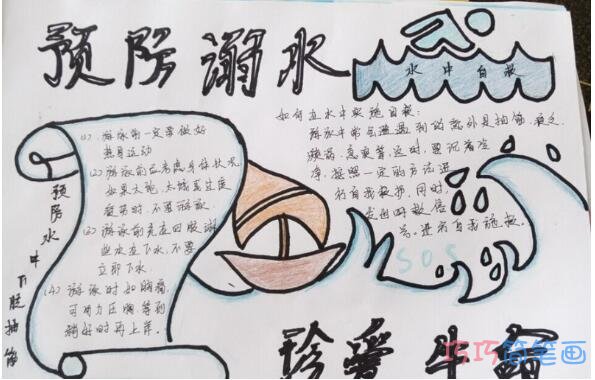 预防溺水
水中自救
预防水中下肢抽筋
(1) 游泳前一定要做好
热身运动
(2) 游泳前应考虑身体状况
如果太饱、太饿或过度
疲劳时,不要游泳
(3) 游泳前先在四肢撩
些水在下水,不要
立即下水.
(4) 游泳时如胸痛,
可用力压胸,等到
稍好时再上岸。
如何在水中实施自救:
游泳中常会遭遇到的意外是抽筋,疲乏,
漩涡,急浪等,这时,要沉着冷
净,按照一定的方法进
行自我救护,同时
发出呼救信
号。进行自我施救。
SOS
珍爱生命
巧巧简笔画